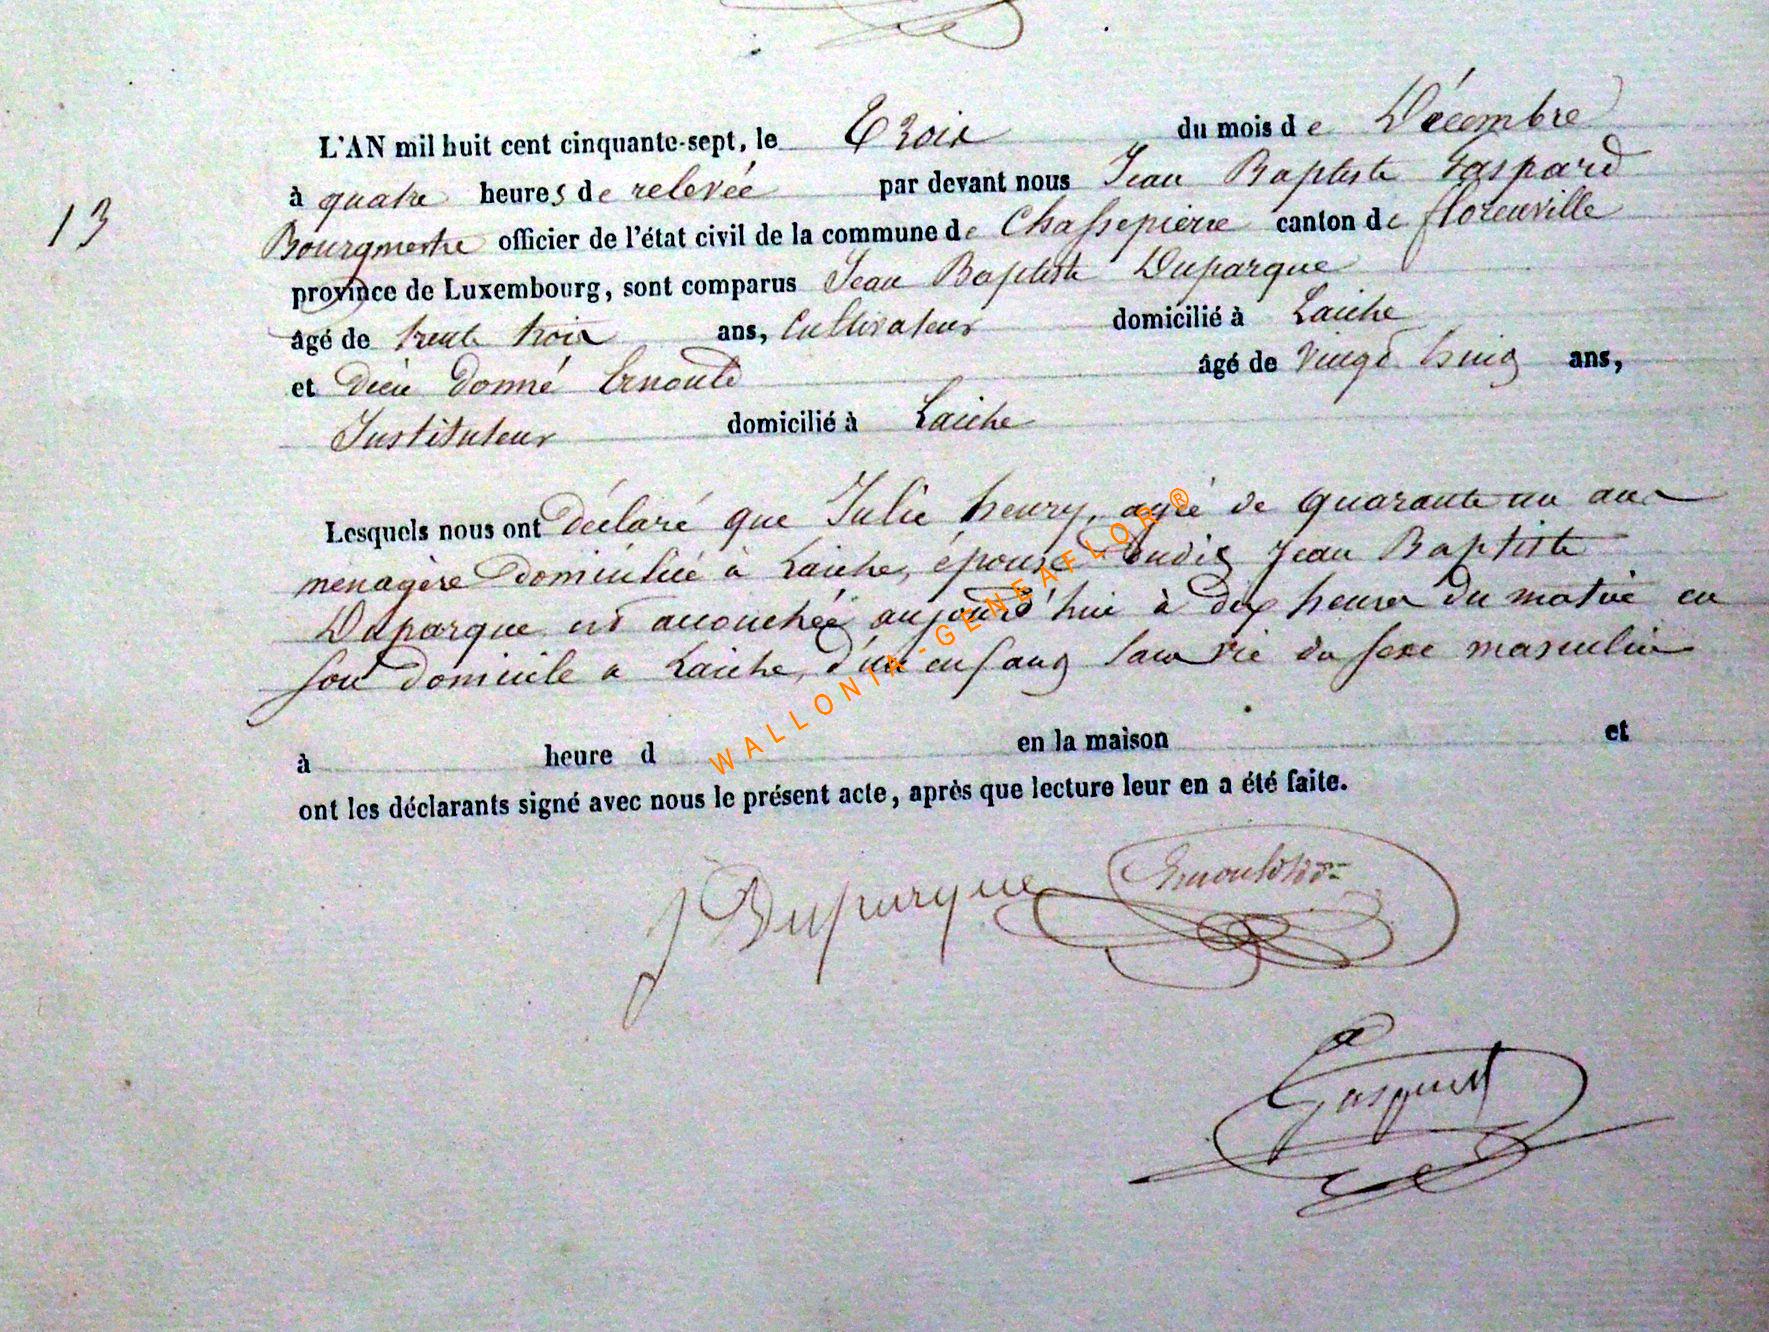 L'AN mil huit cent cinquante-sept, le Trois du mois de Décembre
à quatre heures de relevée par devant nous Jean Baptiste Gaspard
13
Bourgmestre officier de l'état civil de la commune de Chassepierre canton de florenville
province de Luxembourg, sont comparus Jean Baptiste Duparque
âgé de trente trois ans, Cultivateur domicilié à Laiche
et Dieu donné Ernould âgé de vingt huit ans,
Instituteur domicilié à Laiche
Lesquels nous ont déclaré que Julie henry, agée de quarante un ans
menagère domiciliée à Laiche, épouse dudit Jean Baptiste
Duparque est accouchée aujourd'hui à dix heures du matin en
son domicile a Laiche, d'un enfant sans vie du sexe masculin
à heure d en la maison et
ont les déclarants signé avec nous le présent acte, après que lecture leur en a été faite.
WALLONIA-GENEAFLOR®
J Duparque Ernould
Gaspard